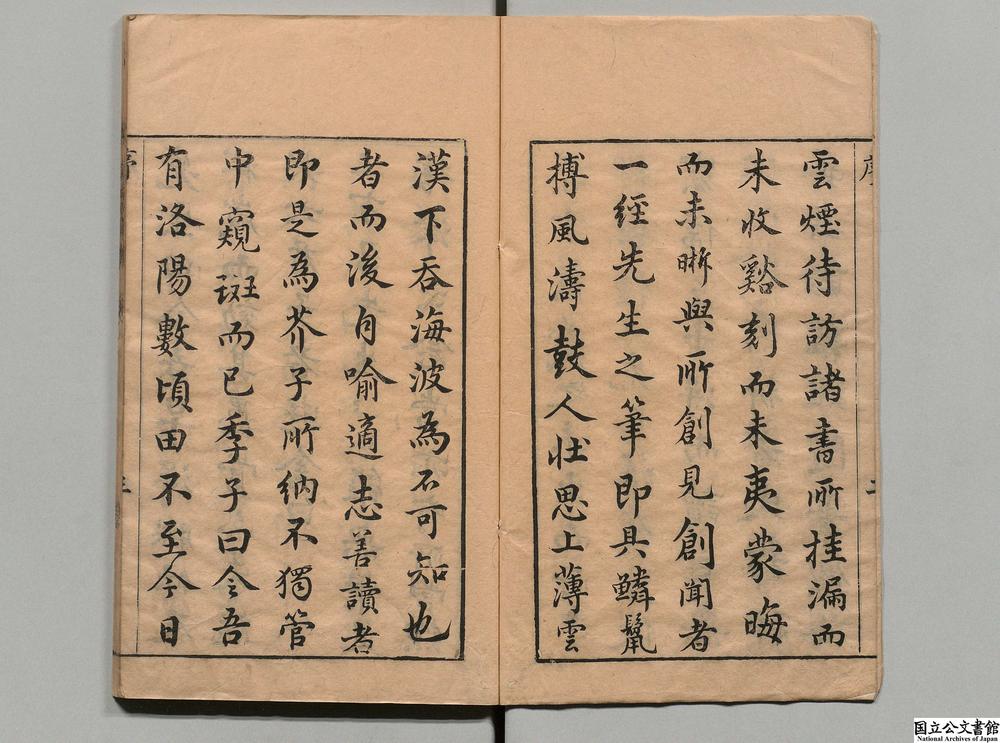 序
二
雲煙待訪諸書所挂漏而
未收谿刻而未夷蒙晦
而未晣與所創見創聞者
一經先生之筆即具鱗鬣
摶風濤鼓人壯思上薄雲
漢下吞海波為不可知也
者而後自喻適志善讀者
即是為芥子所納不獨管
中窺斑而已季子曰令吾
有洛陽數頃田不至今日
序
三
国立公文書館
National Archives of Japan